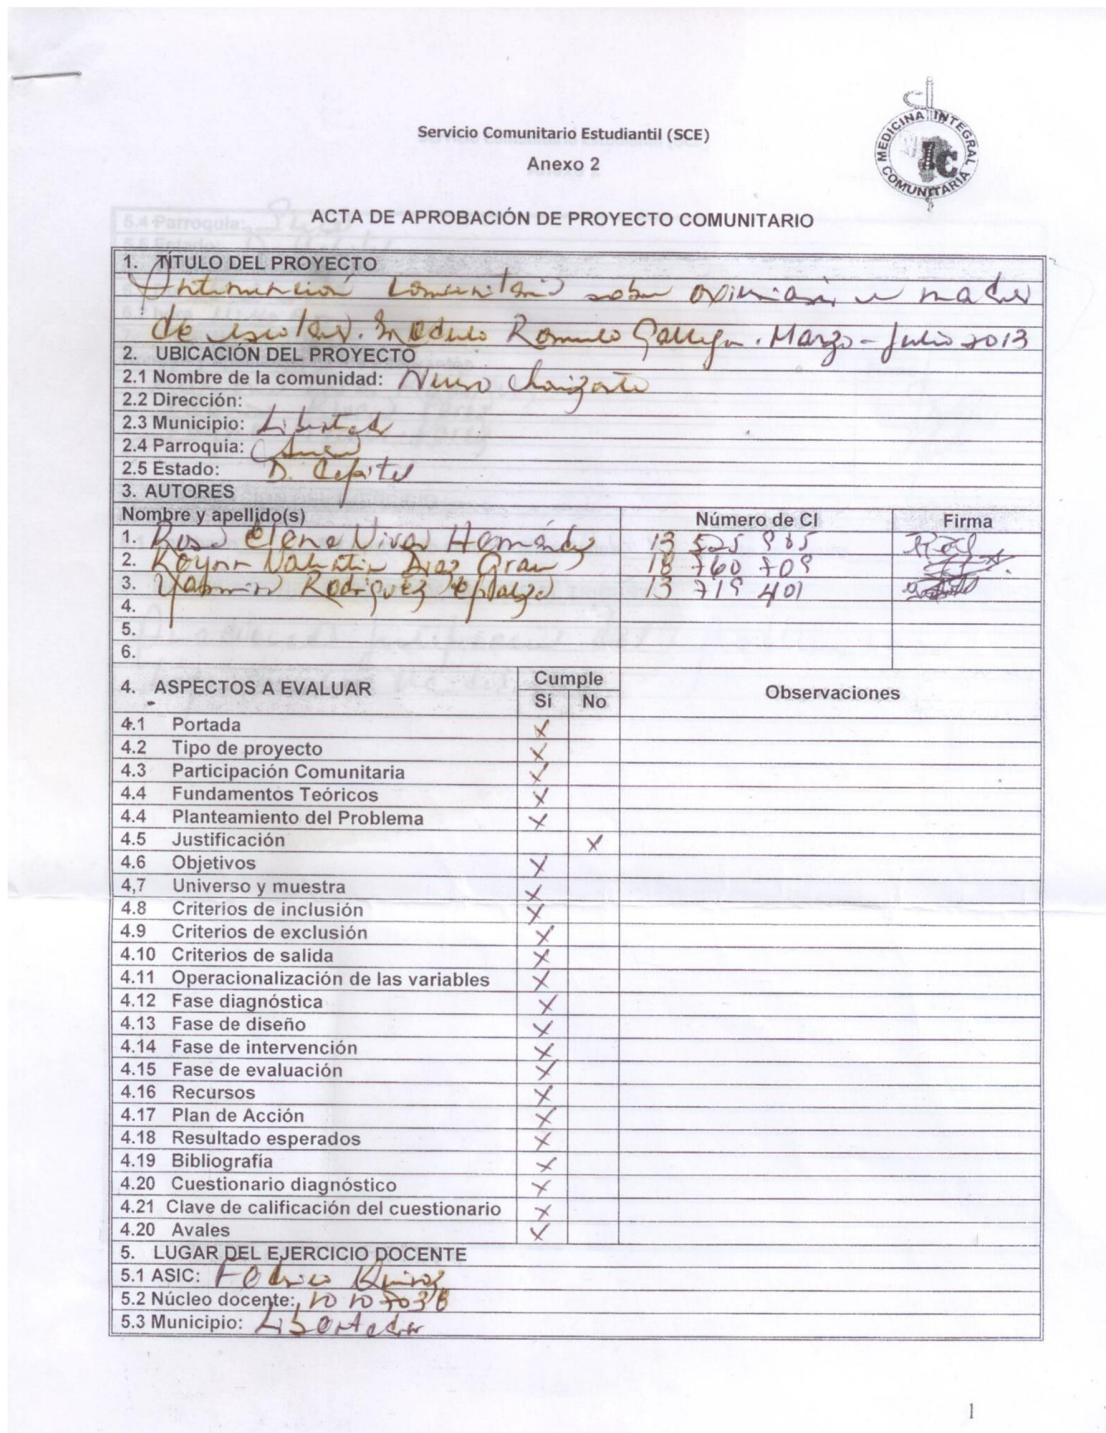 Servicio Comunitario Estudiantil (SCE)
Anexo 2
MEDICINA INTEGRAL COMUNITARIA
ACTA DE APROBACIÓN DE PROYECTO COMUNITARIO
1. TÍTULO DEL PROYECTO
sobre
de Romulo Marzo - Julio 2013
2. UBICACIÓN DEL PROYECTO
2.1 Nombre de la comunidad:
2.2 Dirección:
2.3 Municipio: Libertador
2.4 Parroquia:
2.5 Estado: D. Capital
3. AUTORES
Nombre y apellido(s) Número de CI Firma
1. Rosa Elena 13
2. Diaz 18 760 709
3. Rodriguez 13 719 401
4.
5.
6.
4. ASPECTOS A EVALUAR Cumple Observaciones
Si No
4.1 Portada X
4.2 Tipo de proyecto X
4.3 Participación Comunitaria X
4.4 Fundamentos Teóricos X
4.4 Planteamiento del Problema X
4.5 Justificación X
4.6 Objetivos X
4,7 Universo y muestra X
4.8 Criterios de inclusión X
4.9 Criterios de exclusión X
4.10 Criterios de salida X
4.11 Operacionalización de las variables X
4.12 Fase diagnóstica X
4.13 Fase de diseño X
4.14 Fase de intervención X
4.15 Fase de evaluación X
4.16 Recursos X
4.17 Plan de Acción X
4.18 Resultado esperados X
4.19 Bibliografía X
4.20 Cuestionario diagnóstico X
4.21 Clave de calificación del cuestionario X
4.20 Avales X
5. LUGAR DEL EJERCICIO DOCENTE
5.1 ASIC:
5.2 Núcleo docente:
5.3 Municipio: Libertador
1